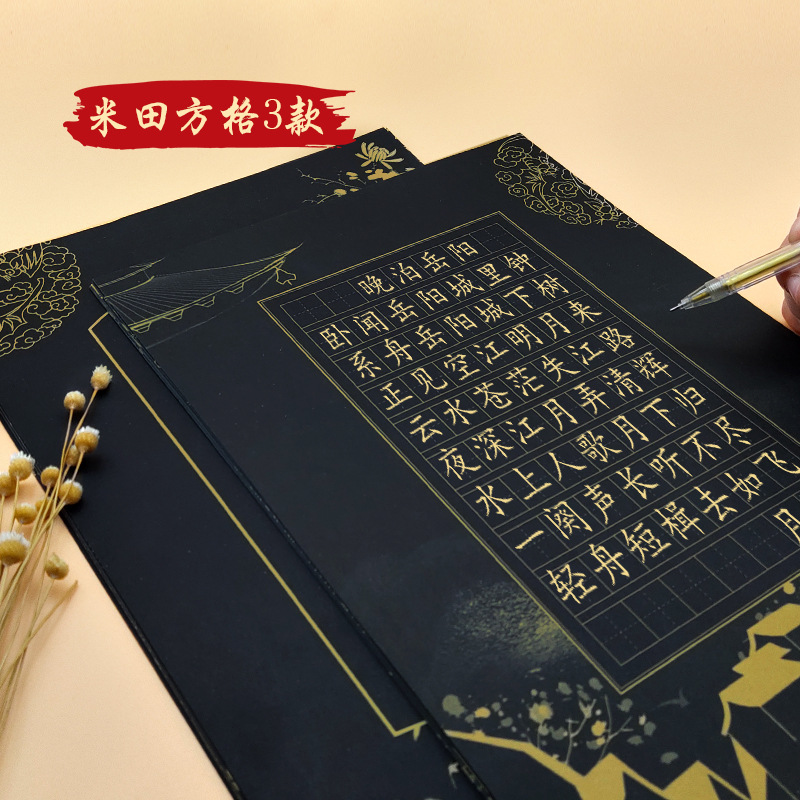 米田方格3款
晚泊岳阳
卧闻岳阳城里钟
系舟岳阳城下树
正见空江明月来
云水苍茫失江路
夜深江月弄清辉
水上人歌月下归
一阕声长听不尽
轻舟短楫去如飞
月